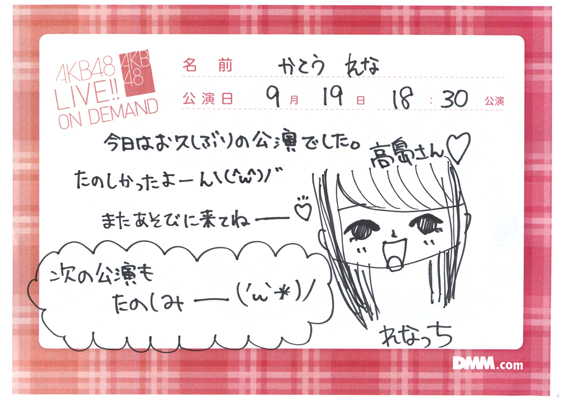 AKB48
LIVE!!
ON DEMAND
AKB
48
名 前 かとう れな
公演日 9月 19日 18:30 公演
今日はお久しぶりの公演でした。
高島さん♡
たのしかったよーん\(^ω^)/
またあそびに来てねー♡
次の公演も
たのしみー('ω'*)ノ
れなっち
DMM.com